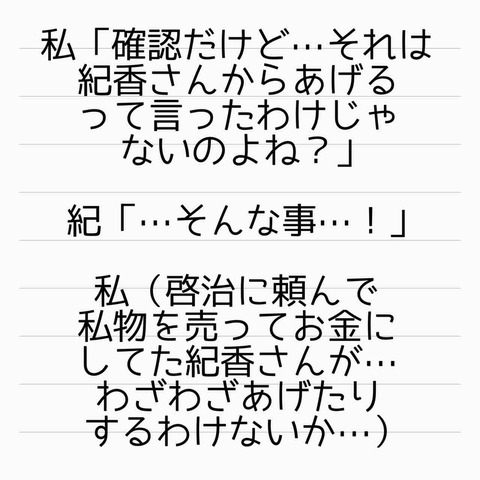 私「確認だけど…それは
紀香さんからあげる
って言ったわけじゃ
ないのよね？」
紀「…そんな事…！」
私（啓治に頼んで
私物を売ってお金に
してた紀香さんが…
わざわざあげたり
するわけないか…）